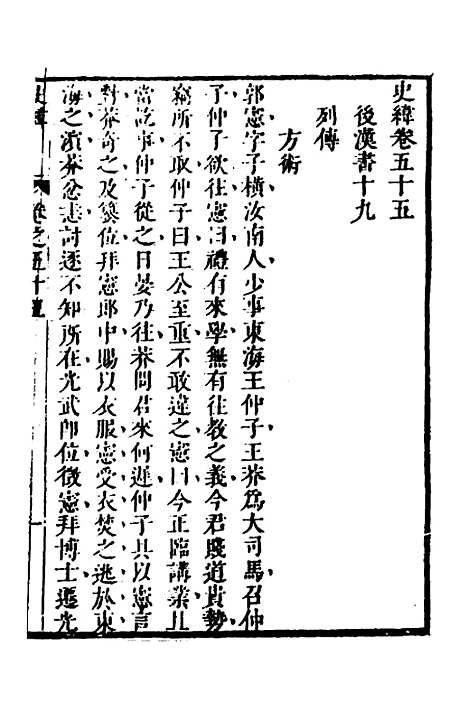 史緯卷五十五
後漢書十九
列傳
方術
郭憲字子橫汝南人少事東海王仲子王莽爲大司馬召仲
子仲子欲往憲曰禮有來學無有往教之義今君賤道貴勢
竊所不取仲子曰王公至重不敢違之憲曰今正臨講業且
當訖事仲子從之日晏乃往莽問君來何遲仲子具以憲言
對莽奇之及篡位拜憲郎中賜以衣服憲受衣焚之逃於東
海之濱莽忿恚討逐不知所在光武即位徵憲拜博士遷光
史緯 卷之五十五 一